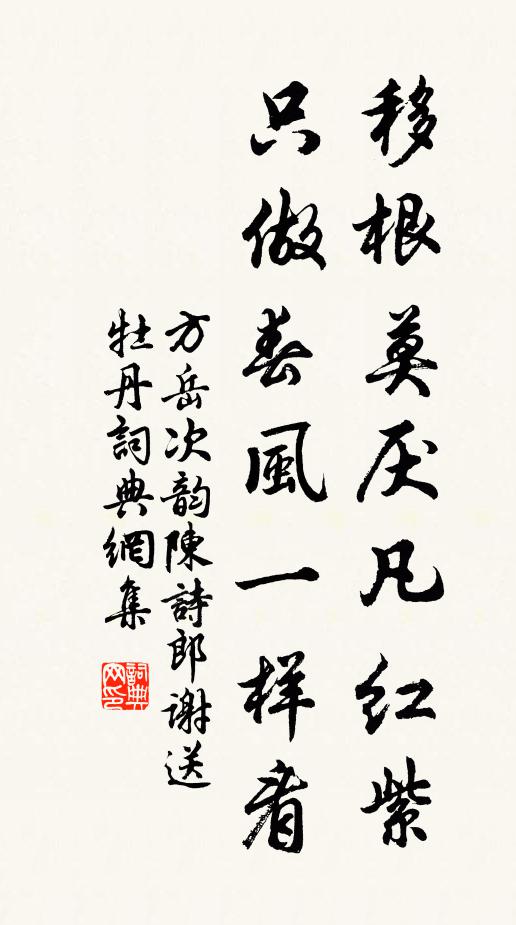 移根莫厌凡红紫
只做春風一样看
方岳次韵陳詩郎謝送
牡丹詞典網集
詞典网印